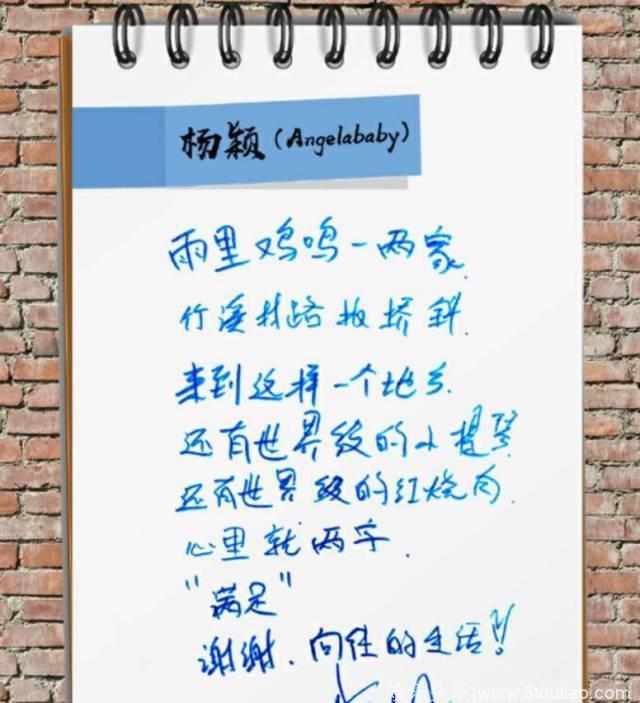 杨颖(Angelababy)
雨里鸡鸣一两家
竹溪村路板桥斜.
来到这样一个地方.
还有世界级的小提琴
还有世界级的红烧肉.
心里就两字.
"满足"
谢谢.向往的生活!!
www.5toutiao.com